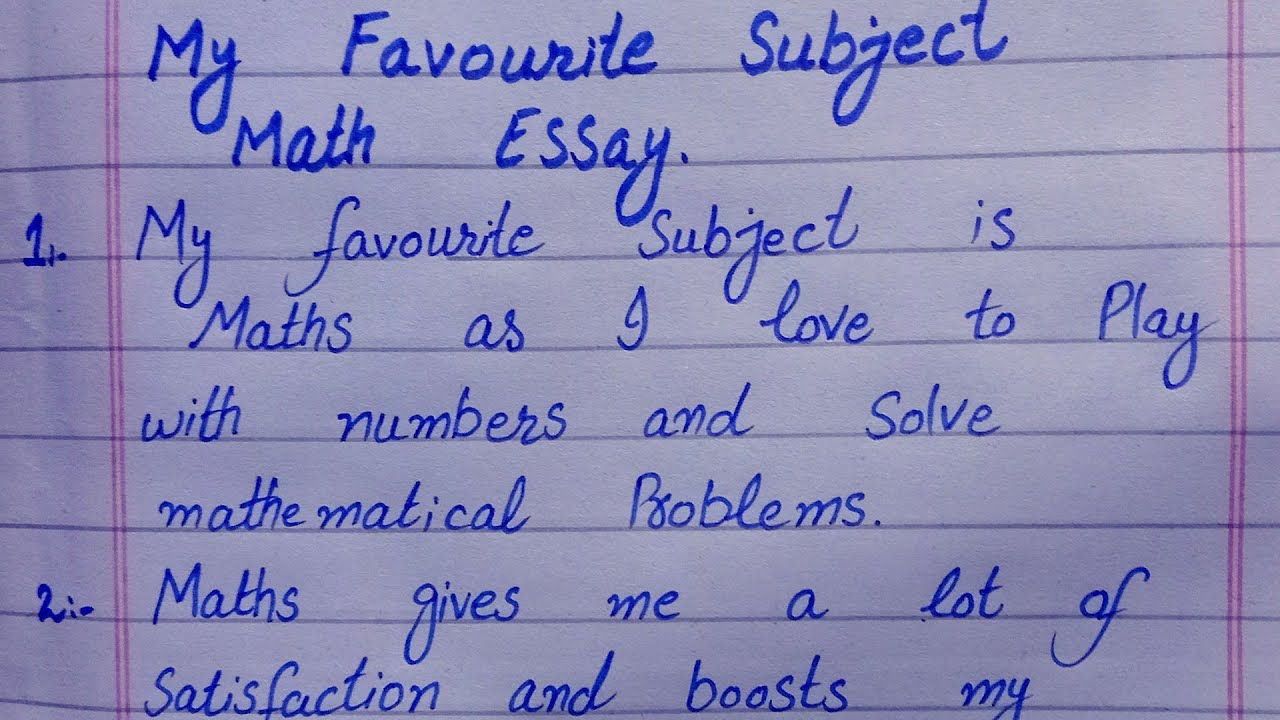 My Favourite Subject
Math Essay.
1:- My favourite Subject is
Maths as I love to Play
with numbers and Solve
mathematical Problems.
2:- Maths gives me a lot of
Satisfaction and boosts my